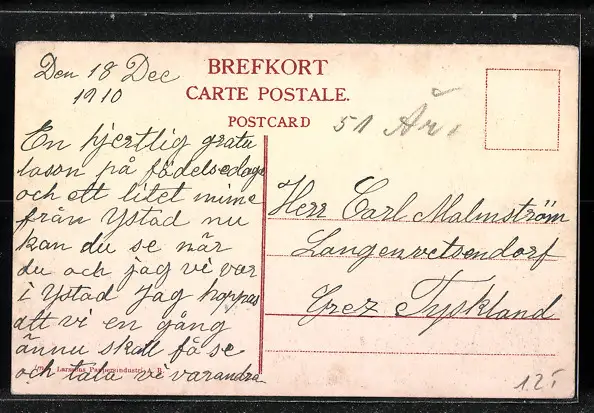 Den 18 Dec
1910
BREFKORT
CARTE POSTALE.
POSTCARD
51 År.
En hjertlig gratu
lason på födelsedage
och ett litet minne
från Ystad nu
kan du se när
du och jag vi var
i Ystad Jag hoppas
att vi en gång
ännu skall få se
och tala ve varandra
Herr Carl Malmström
Langenwetsendorf
Tyskland
Larssons Pappersindustri A. B.
12.